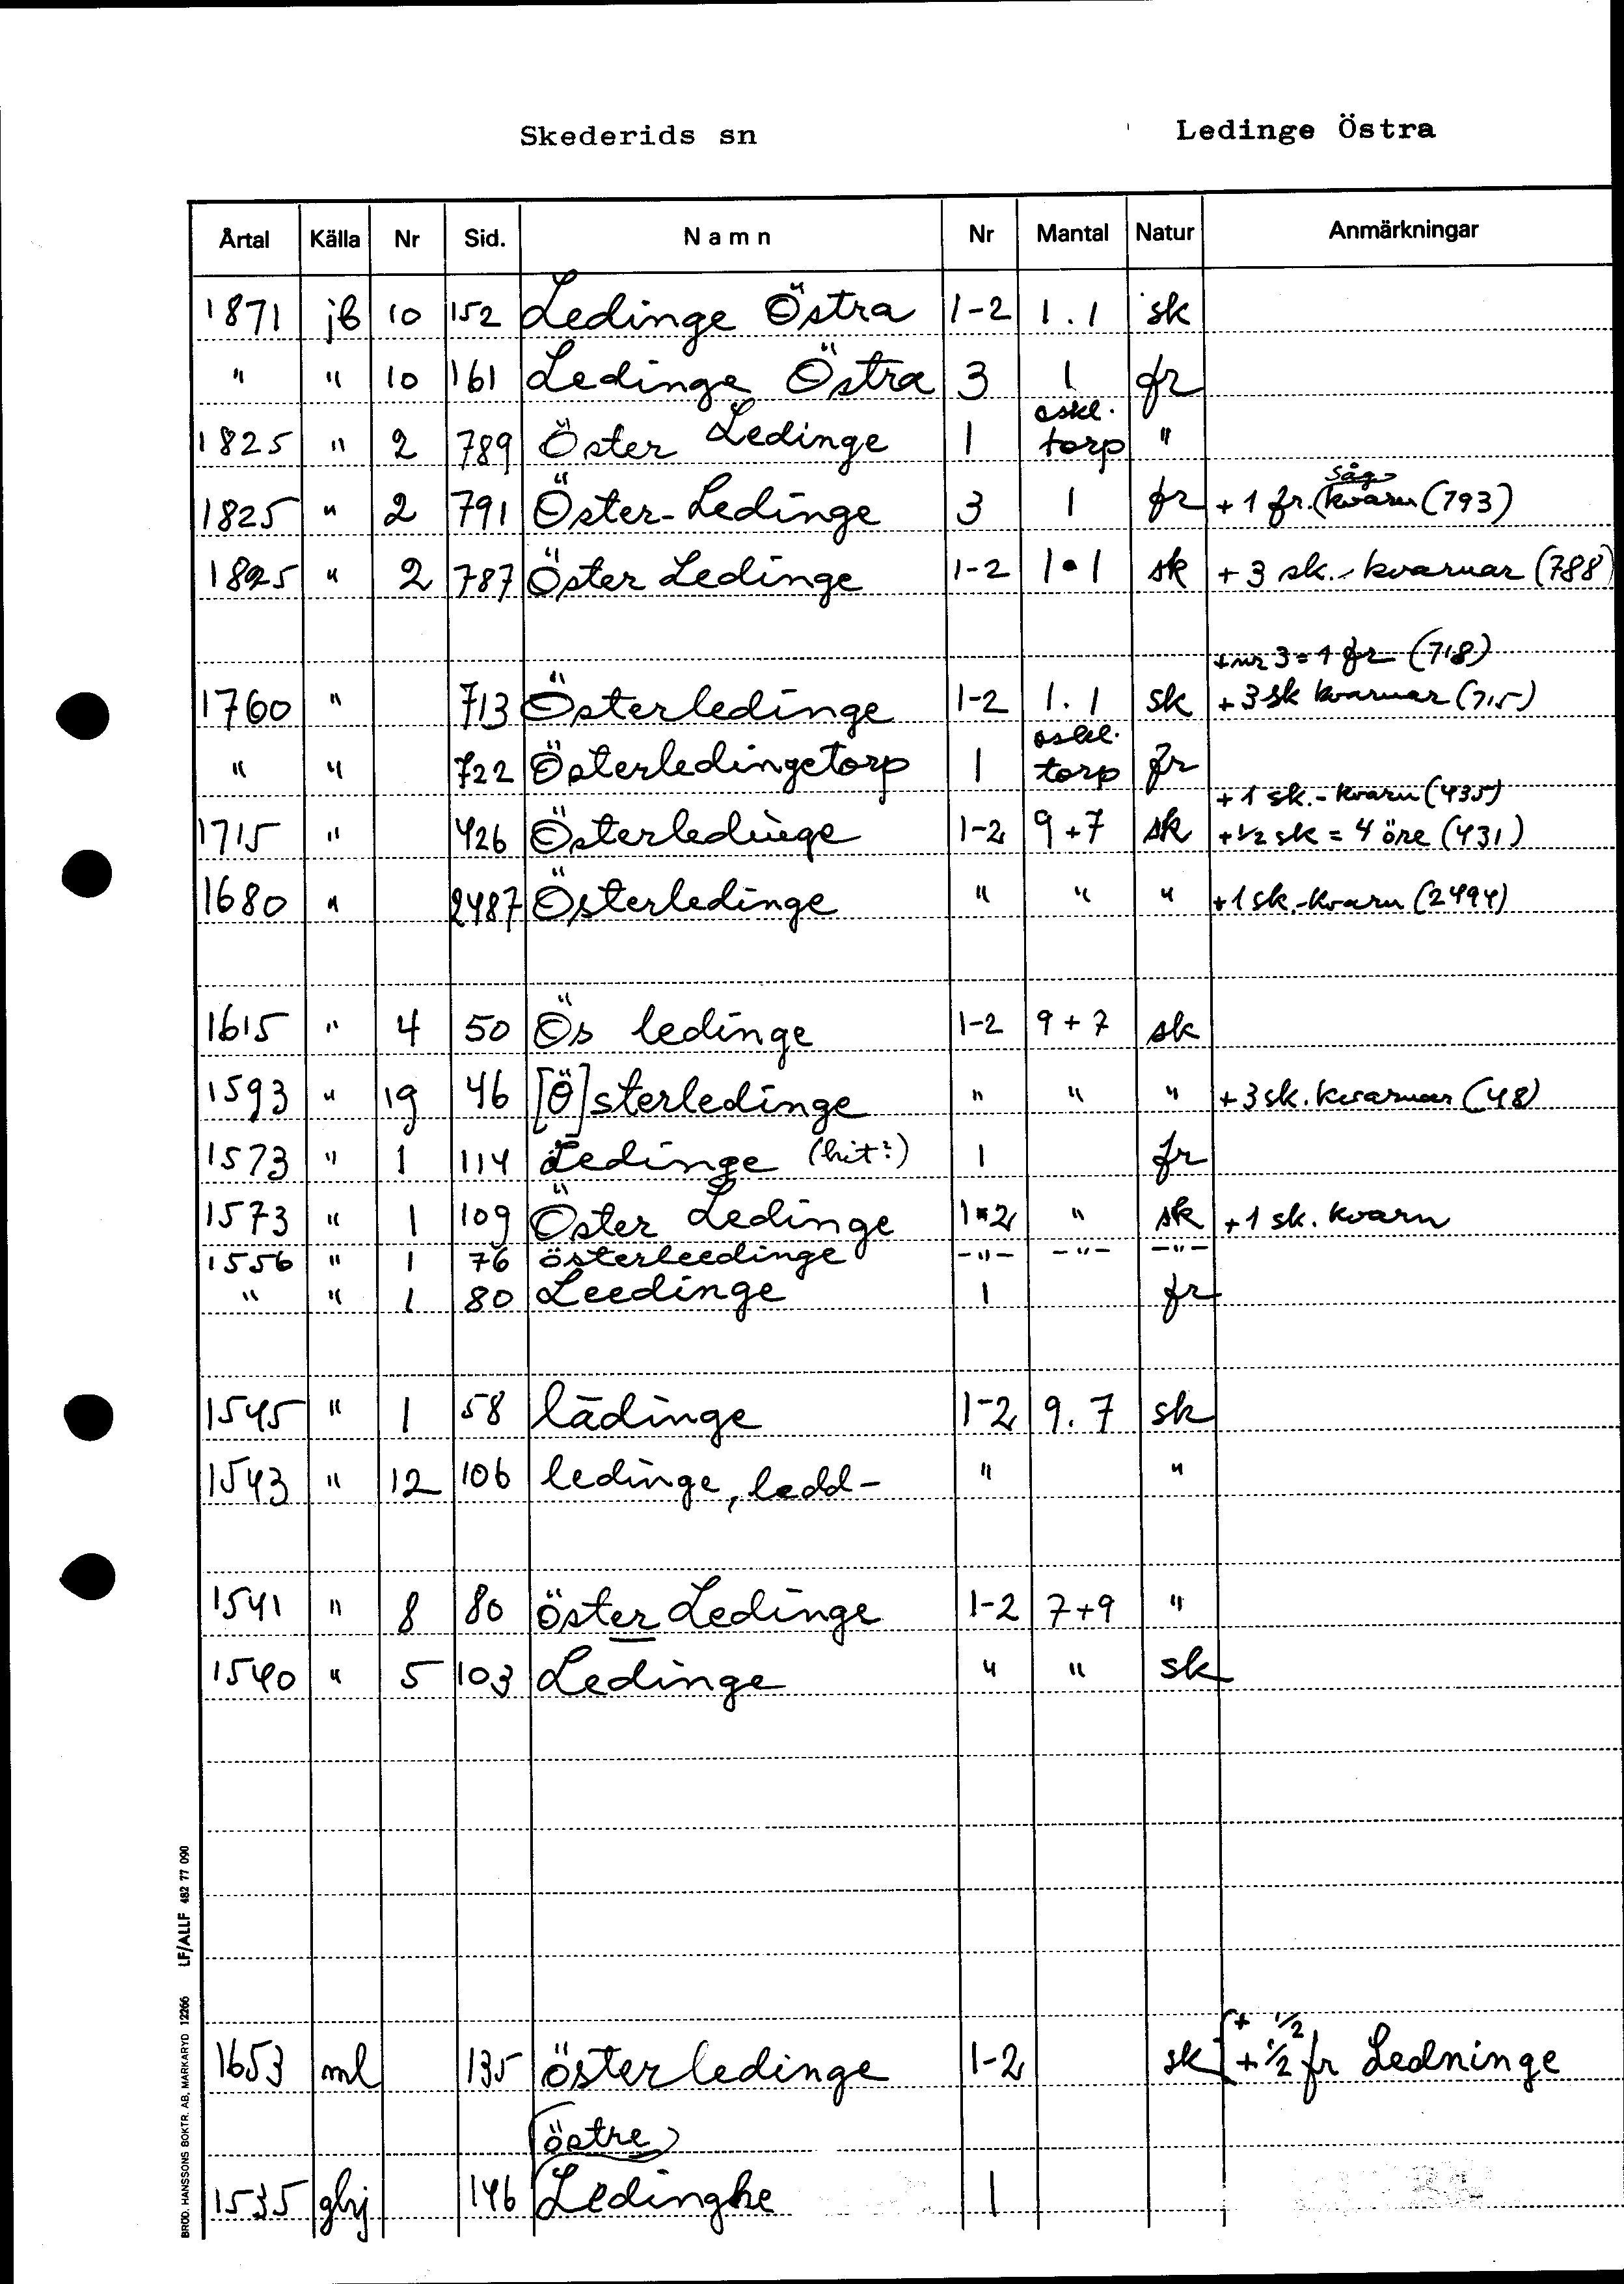 Skederids sn Ledinge Östra
Årtal Källa Nr Sid. Namn Nr Mantal Natur Anmärkningar
1871 jb 10 152 Ledinge Östra 1-2 1.1 sk
" " 10 161 Ledinge Östra 3 1 fr
oskl.
1825 " 2 789 Öster Ledinge 1 torp "
Såg-
1825 " 2 791 Öster-Ledinge 3 1 fr + 1 fr. (kvarn (793)
1825 " 2 787 Öster Ledinge 1-2 1.1 sk + 3 sk.-kvarnar (788)
+nr 3 = 1 fr (718)
1760 " 713 Österledinge 1-2 1.1 sk + 3 sk kvarnar (715)
oskl.
" " 722 Österledingetorp 1 torp fr
+ 1 sk.-kvarn (435)
1715 " 426 Österledinge 1-2 9+7 sk +½ sk = 4 öre (431)
1680 " 2487 Österledinge " " " +1 sk.-kvarn (2494)
1615 " 4 50 Ös ledinge 1-2 9+7 sk
1593 " 19 46 [Ö]sterledinge " " " +3 sk. kvarnar (48)
1573 " 1 114 Ledinge (hit?) 1 fr
1573 " 1 109 Öster Ledinge 1-2 " sk +1 sk. kvarn
1556 " 1 76 österleedinge -"- -"- -"-
" " 1 80 Leedinge 1 fr
1545 " 1 58 lädinge 1-2 9.7 sk
1543 " 12 106 ledinge, ledd- " "
1541 " 8 80 öster Ledinge 1-2 7+9 "
1540 " 5 103 Ledinge " " sk
+ ½
1653 ml 135 österledinge 1-2 sk + ½ fr Ledninge
östre
1535 ghj 146 Ledinghe 1
BRÖD. HANSSONS BOKTR. AB, MARKARYD 12266 LF/ALLF 482 77 090